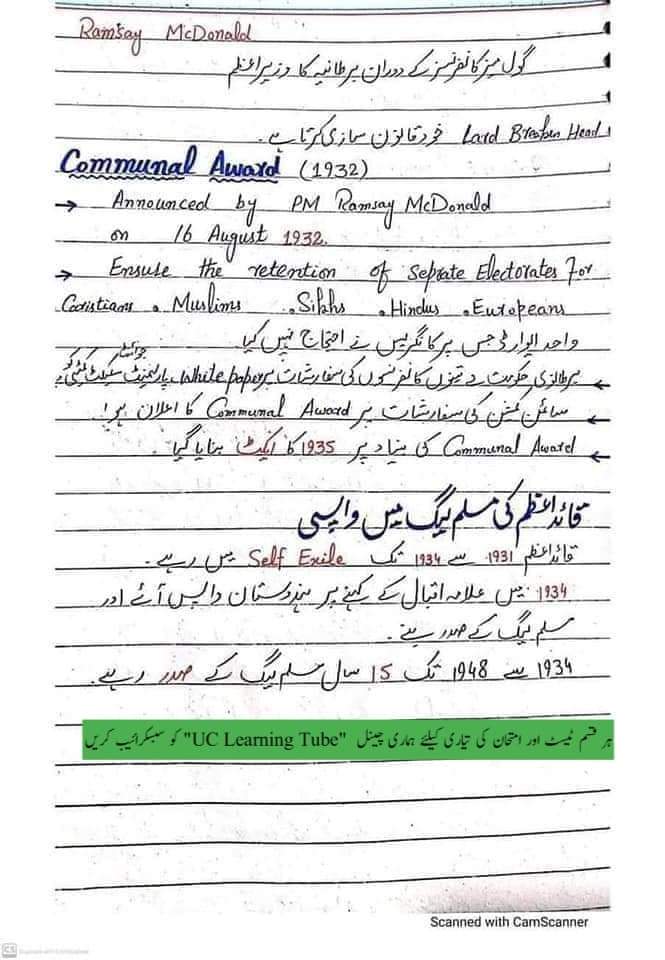 Ramsay McDonald
گول میز کانفرنسز کے دوران برطانیہ کا وزیراعظم
Lard Breaken Head خود قانون سازی کرتا ہے۔
Communal Award (1932)
→ Announced by PM Ramsay McDonald
on 16 August 1932.
→ Ensuse the retention of Seprate Electorates For
Coristians . Muslims . Sikhs . Hindus . Europeans
واحد ایوارڈ جس پر کانگریس نے احتجاج نہیں کیا
← برطانوی حکومت نے تینوں کانفرنسوں کی سفارشات پر White paper جوائنٹ پارلیمنٹ سیلیکٹ کمیٹی کو
← سائمن کمیشن کی سفارشات پر Communal Award کا اعلان ہوا!
← Communal Award کی بنیاد پر 1935 کا ایکٹ بنایا گیا۔
قائداعظم کی مسلم لیگ میں واپسی
قائداعظم 1931 سے 1934 تک Self Exile میں رہے۔
1934 میں علامہ اقبال کے کہنے پر ہندوستان واپس آئے اور
مسلم لیگ کے صدر بنے۔
1934 سے 1948 تک 15 سال مسلم لیگ کے صدر رہے۔
ہر قسم ٹیسٹ اور امتحان کی تیاری کیلئے ہماری چینل "UC Learning Tube" کو سبسکرائیب کریں
Scanned with CamScanner
CS Scanned with CamScanner